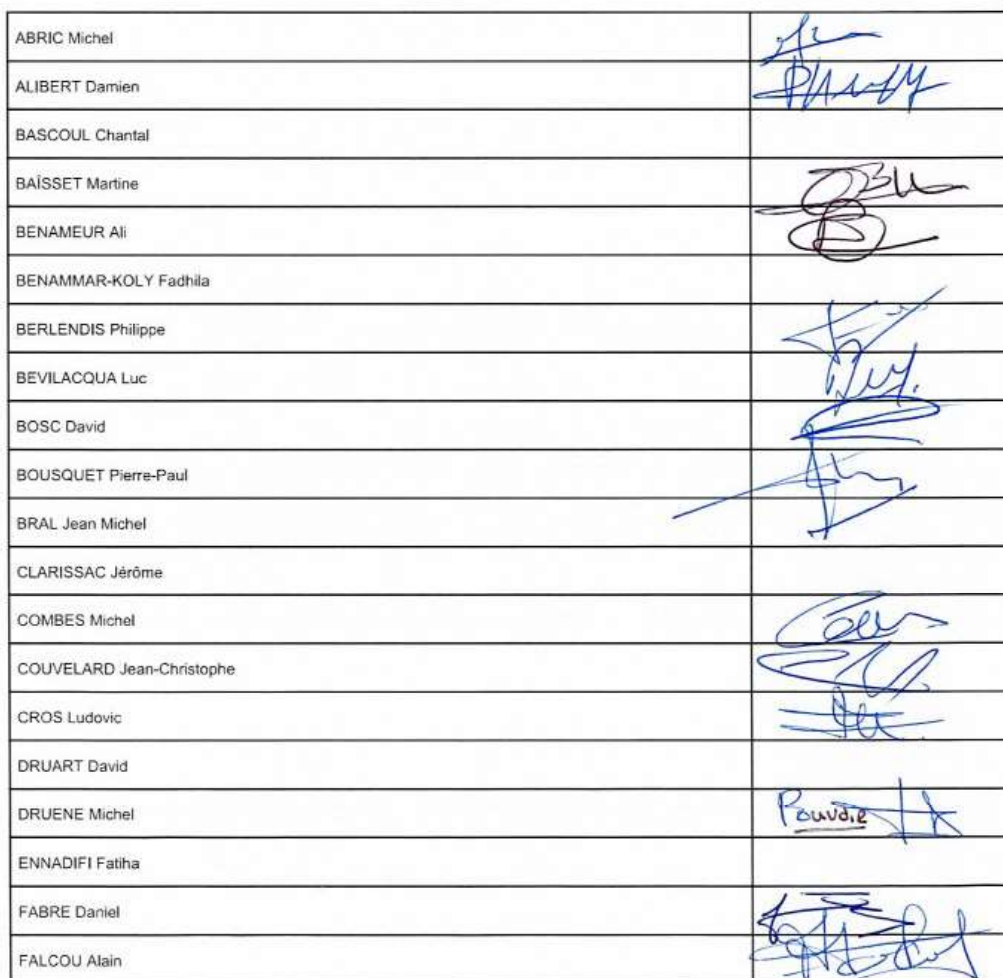 ABRIC Michel
ALIBERT Damien
BASCOUL Chantal
BAÏSSET Martine
BENAMEUR Ali
BENAMMAR-KOLY Fadhila
BERLENDIS Philippe
BEVILACQUA Luc
BOSC David
BOUSQUET Pierre-Paul
BRAL Jean Michel
CLARISSAC Jérôme
COMBES Michel
COUVELARD Jean-Christophe
CROS Ludovic
DRUART David
DRUENE Michel
ENNADIFI Fatiha
FABRE Daniel
FALCOU Alain